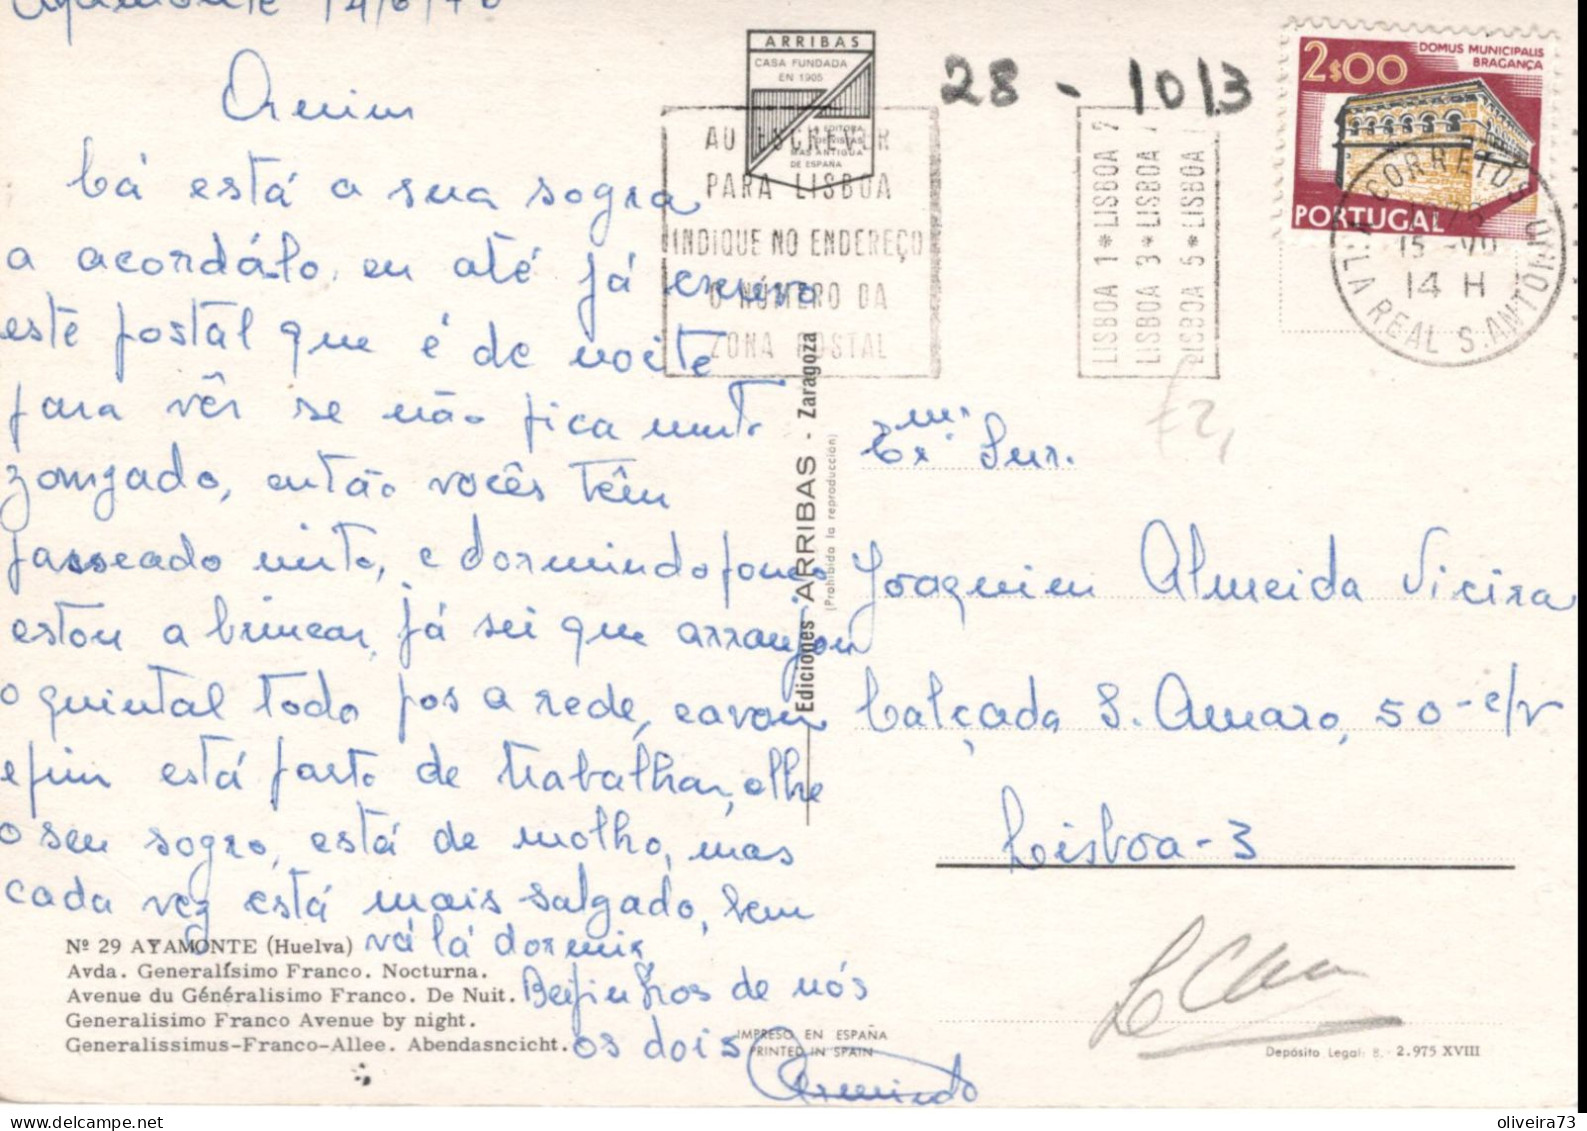 Ayamonte 14/6/76
Cá está a sua sogra
a acordá-lo, eu até já enviro
este postal que é de noite
para vêr se não fica muito
zangado, então vocês têm
passeado muito, e dormindo pouco
estou a brincar, já sei que arranjou
o quintal todo pos a rede, cavou
efim está farto de trabalhar, olhe
o seu sogro, está de molho, mas
cada vez está mais salgado, bem
vá lá dormir,
Beijinhos de nós
os dois
Armindo
ARRIBAS
CASA FUNDADA
EN 1905
LA EDITORA
DE VISTAS
MAS ANTIGUA
DE ESPAÑA
AO ESCREVER
PARA LISBOA
INDIQUE NO ENDEREÇO
O NÚMERO DA
ZONA POSTAL
LISBOA 1 * LISBOA 2
LISBOA 3 * LISBOA
LISBOA 5 * LISBOA
28 - 1013
2$00
DOMUS MUNICIPALIS
BRAGANÇA
PORTUGAL
CORREIOS
15-VII
14 H
VILA REAL S. ANTÓNIO
Ediciones ARRIBAS - Zaragoza
(Prohibida la reproducción)
Exmº Snr.
Joaquim Almeida Vieira
Calçada S. Amaro, 50-c/v
Lisboa-3
Nº 29 AYAMONTE (Huelva)
Avda. Generalísimo Franco. Nocturna.
Avenue du Généralisimo Franco. De Nuit.
Generalisimo Franco Avenue by night.
Generalissimus-Franco-Allee. Abendasncicht.
IMPRESO EN ESPAÑA
PRINTED IN SPAIN
Depósito Legal: B. - 2.975 XVIII
oliveira73